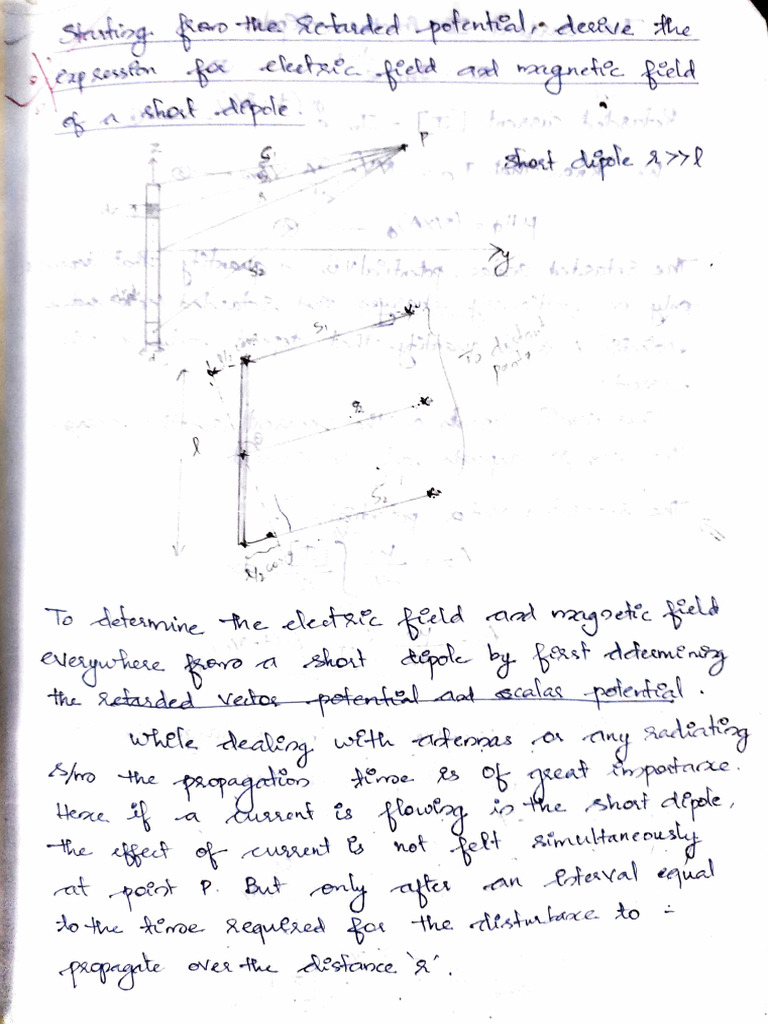 Starting from the retarded potential, derive the
expression for electric field and magnetic field
of a short dipole.
z
P
short dipole r>>l
S1
r
y
S2
S1
l/2 cosθ
To distant
points
r
l
S2
l/2 cosθ
To determine the electric field and magnetic field
everywhere from a short dipole by first determining
the retarded vector potential and scalar potential.
While dealing with antennas or any radiating
s/m the propagation time is of great importance.
Hence if a current is flowing in the short dipole,
the effect of current is not felt simultaneously
at point P. But only after an interval equal
to the time required for the disturbance to -
propagate over the distance 'r'.